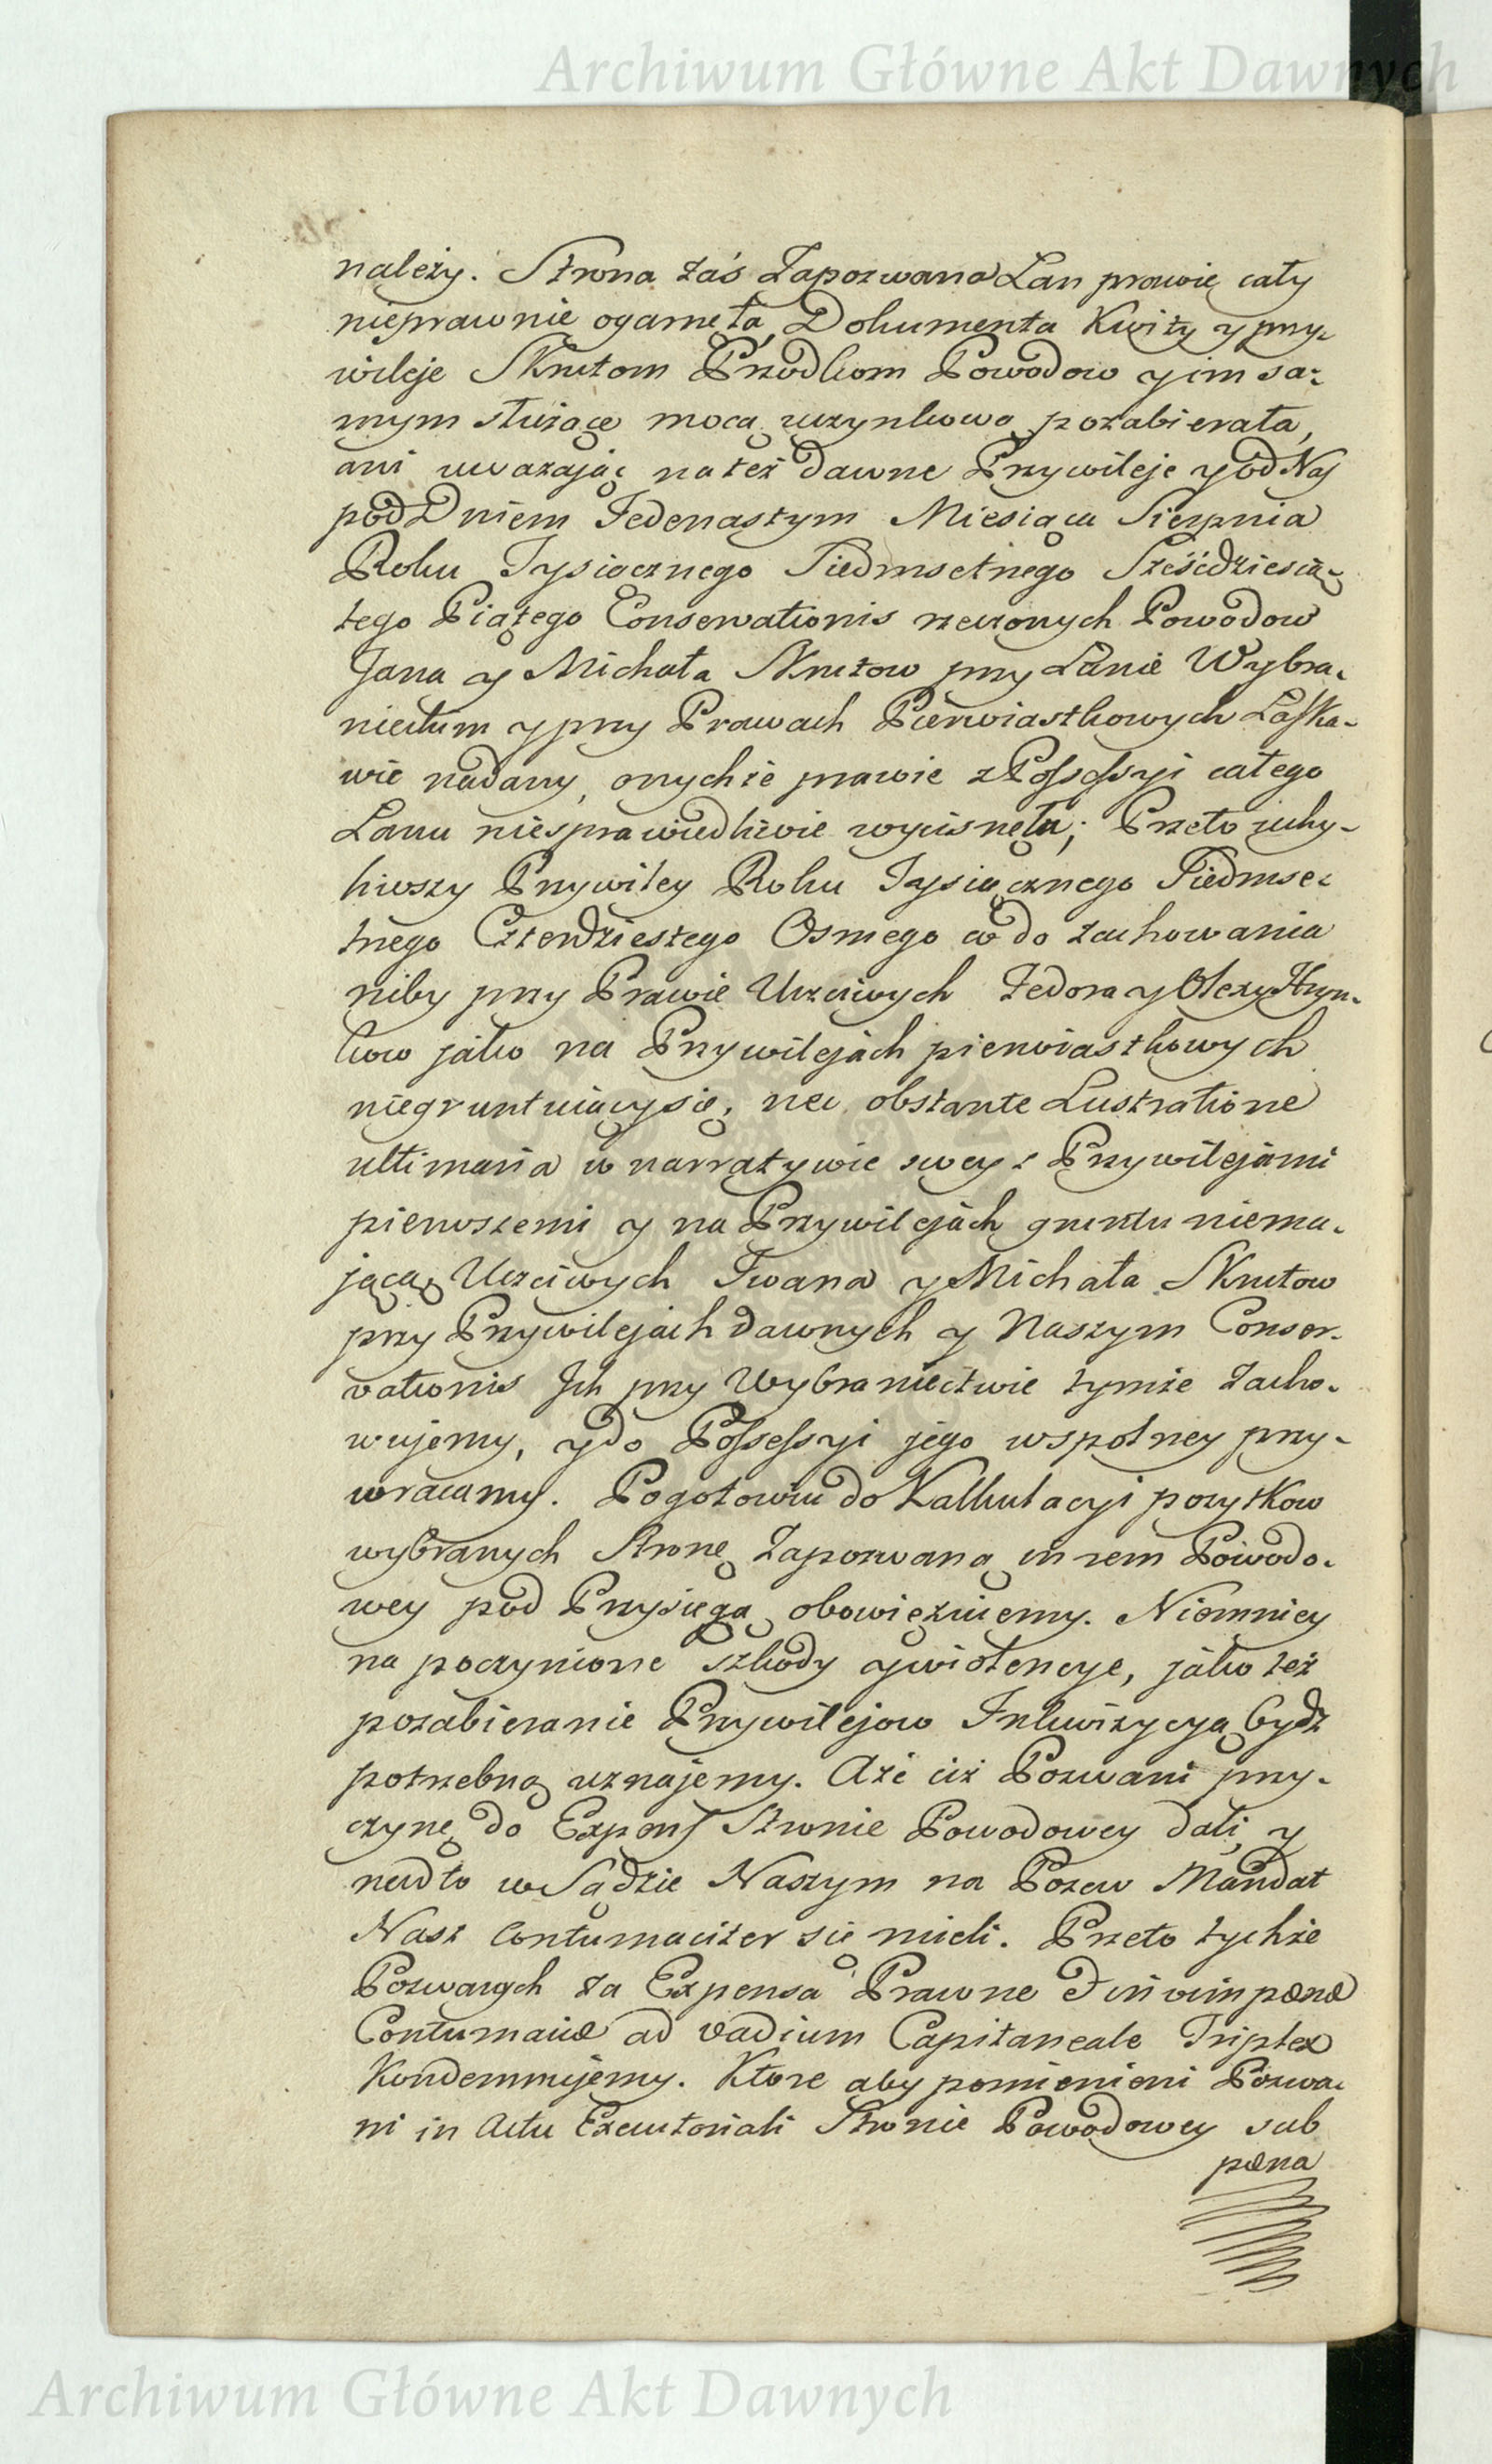 Archiwum Główne Akt Dawnych
należy. Strona zaś Zapozwana Łan prawie cały
nieprawnie ogarnęła, Dokumenta Kwity y przy-
wileje Skrutom Przodkom Powodow y im sa-
mym służące mocą uczynkową pozabierała,
ani uważając na też dawne Przywileje y od Nas
pod Dniem Jedenastym Miesiąca Sierpnia
Roku Tysiącznego Siedmsetnego Sześćdziesią-
tego Piątego Conservationis rzeczonych Powodow
Jana y Michała Skrutow przy Łanie Wybra-
nieckim y przy Prawach Pierwiastkowych Łaska-
wie nadany, onychże prawie z Possessyi całego
Łanu niesprawiedliwie wycisnęła; Przeto uchy-
liwszy Przywiley Roku Tysiącznego Siedmse-
tnego Czterdziestego Osmego co do zachowania
niby przy Prawie Uczciwych Fedora y Olexy Hryn-
kow jako na Przywilejach pierwiastkowych
niegruntuiący się, nec obstante Lustratione
ultimaria w narratywie swey z Przywilejami
pierwszemi y na Przywilejach gruntu niema-
jącą, Uczciwych Iwana y Michała Skrutow
przy Przywilejach dawnych y Naszym Conser-
vationis Ich przy Wybraniectwie tymże zacho-
wujemy, y do Possessyi jego wspolney przy-
wracamy. Pogotowiu do Kalkulacyi pozytkow
wybranych Stronę Zapozwaną in rem Powodo-
wey pod Przysięgą obowięzuiemy. Niemniey
na poczynione szkody y wiolencye, jako też
pozabieranie Przywilejow Inkwizycyą bydź
potrzebną uznajemy. A że ciż Pozwani przy-
czynę do Expens Stronie Powodowey dali, y
nadto w Sądzie Naszym na Pozew Mandat
Nasz contumaciter się mieli. Przeto tychże
Pozwanych za Expensa Prawne et in vim pœnæ
Contumaciæ ad vadium Capitaneale Triplex
Kondemnujemy. Ktore aby pomienieni Pozwa-
ni in Actu Executoriali Stronie Powodowey sub
pœna
Archiwum Główne Akt Dawnych